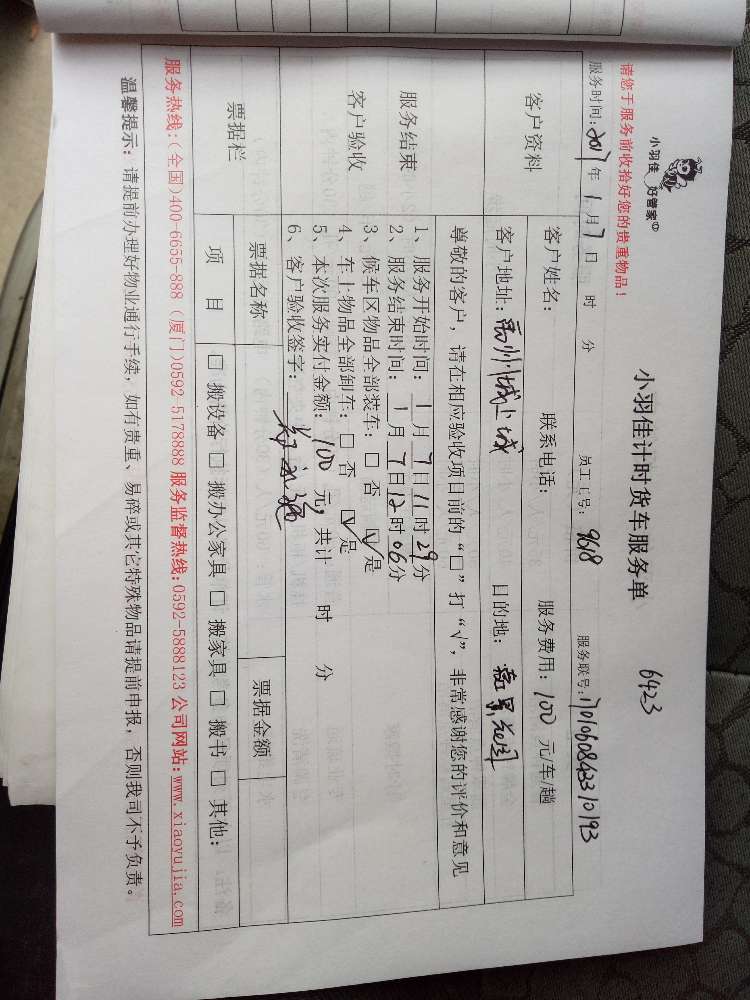 小羽佳 好管家
小羽佳计时货车服务单 6423
请您于服务前收拾好您的贵重物品！
服务时间：2017年1月7日 时 分 员工工号：9618 服务联号：17010608423310193
客户资料
客户姓名： 联系电话： 服务费用：100 元/车/趟
客户地址：禹州城上城 目的地：
尊敬的客户，请在相应验收项目前的“□”打“√”，非常感谢您的评价和意见
服务结束
客户验收
1、服务开始时间：1月7日11时29分
2、服务结束时间：1月7日12时06分
3、候车区物品全部装车：□ 否 ☑ 是
4、车上物品全部卸车：□ 否 ☑ 是
5、本次服务实付金额：100 元，共计 时 分
6、客户验收签字：
票据栏
票据名称 票据金额
项 目 □ 搬设备 □ 搬办公家具 □ 搬家具 □ 搬书 □ 其他：
服务热线：(全国)400-6655-888 (厦门)0592-5178888 服务监督热线：0592-5888123 公司网站：www.xiaoyujia.com
温馨提示：请提前办理好物业通行手续，如有贵重、易碎或其它特殊物品请提前申报，否则我司不予负责。